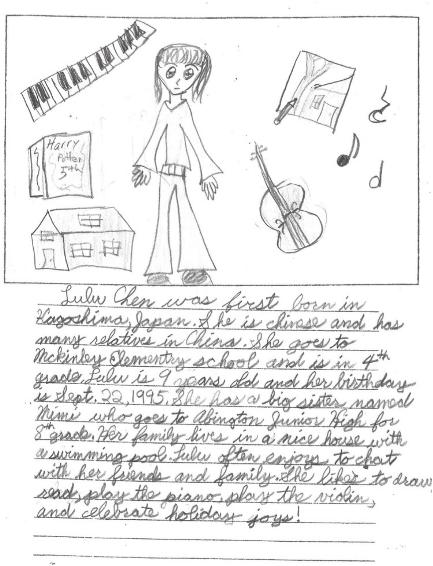 Harry
Potter
5th
Lulu Chen was first born in
Kagoshima, Japan. She is chinese and has
many relatives in China. She goes to
Mckinley Elementry school and is in 4th
grade. Lulu is 9 years old and her birthday
is Sept. 22, 1995. She has a big sister named
Mimi who goes to Abington Junior High for
8th grade. Her family lives in a nice house with
a swimming pool. Lulu often enjoys to chat
with her friends and family. She likes to draw,
read, play the piano, play the violin,
and celebrate holiday joys!